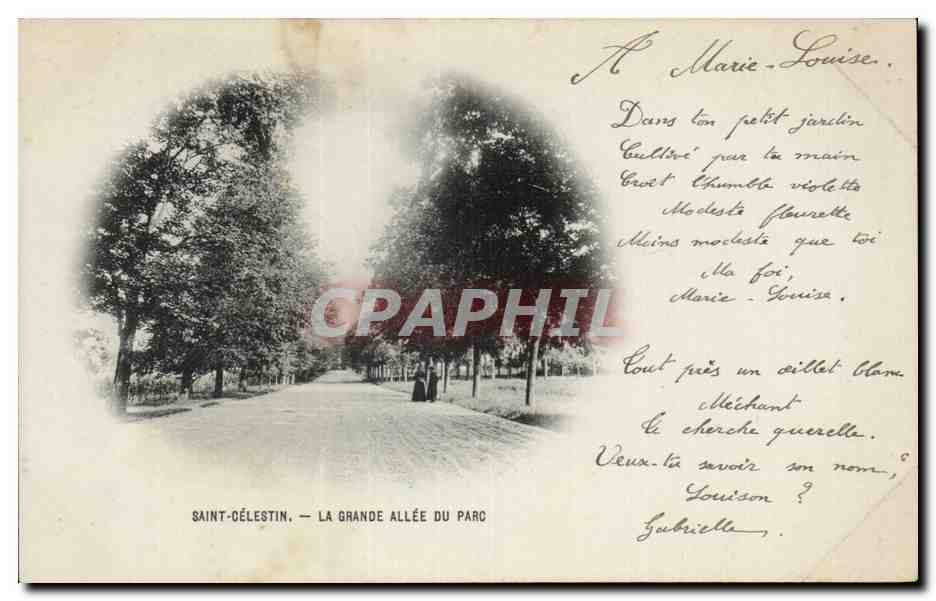 A Marie-Louise.
Dans ton petit jardin
Cultivé par ta main
Croît l'humble violette
Modeste fleurette
Moins modeste que toi
Ma foi,
Marie-Louise.
Tout près un œillet blanc
Méchant
Te cherche querelle.
Veux-tu savoir son nom,
Louison ?
Gabrielle.
CPAPHIL
SAINT-CÉLESTIN. — LA GRANDE ALLÉE DU PARC